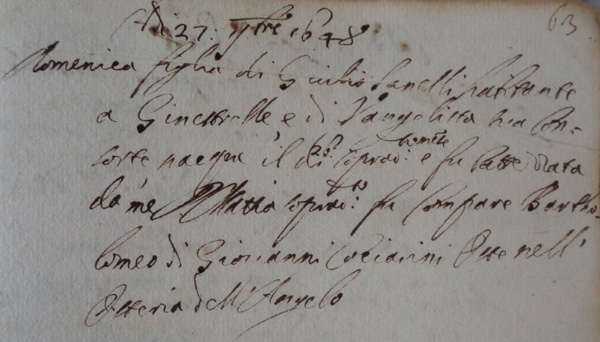 Adi 27: 7bre 1648 63
Domenica figlia di Giulio Sanelli habitante
a Ginestrelle e di Vangelista sua Con=
sorte nacque il di soprad: e fu battezzata
da me Mattia soprad:to fu Compare Bartho=
lomeo di Giovanni Cucciarini Oste nell'
Osteria dell'Angelo